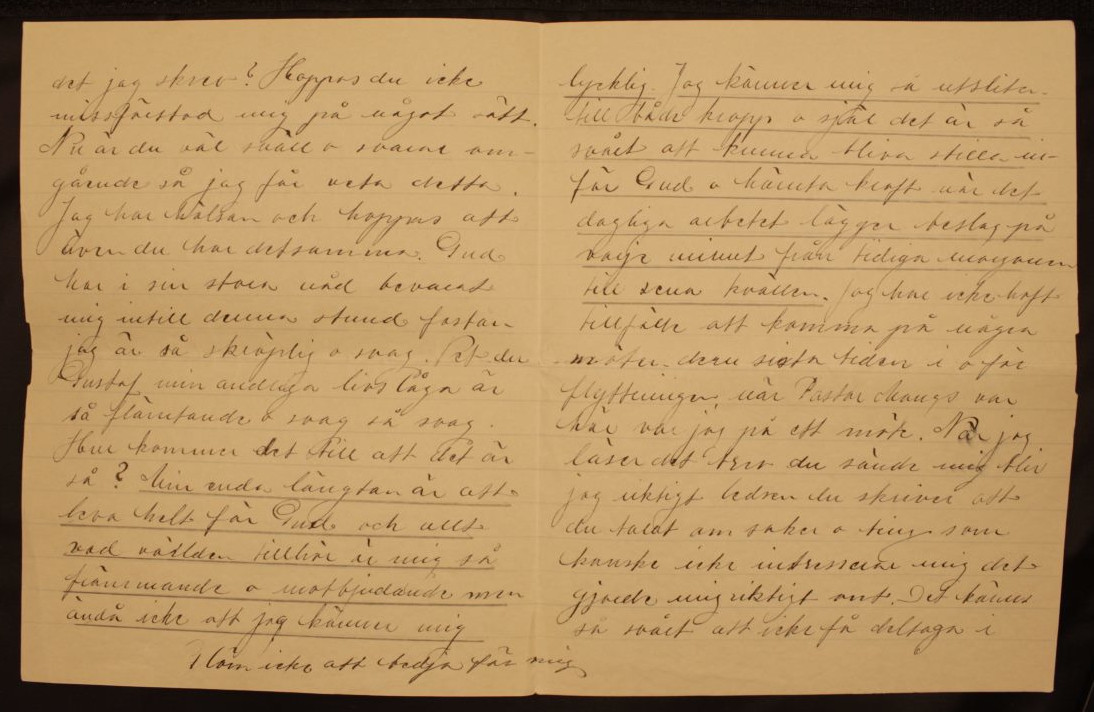 det jag skrev? Hoppas du icke
missförstod mig på något sätt.
Nu är du väl snäll o svarar om-
gående så jag får veta detta.
Jag har hälsan och hoppas att
även du har detsamma. Gud
har i sin stora nåd bevarat
mig intill denna stund fastän
jag är så skröplig o svag. Vet du
Gustaf min andliga livs låga är
så flämtande o svag så svag.
Hur kommer det till att det är
så? Min enda längtan är att
leva helt för Gud och allt
vad världen tillhör är mig så
främmande o motbjudande men
ändå icke att jag känner mig
Glöm icke att bedja för mig
lycklig. Jag känner mig så utsliten
till både kropp o själ det är så
svårt att kunna bliva stilla in-
för Gud o hämta kraft när det
dagliga arbetet lägger beslag på
varje minut från tidiga morgonen
till sena kvällen. Jag har icke haft
tillfälle att komma på några
möten denna sista tiden i o för
flyttningen, när Pastor Mangs var
här var jag på ett möte. När jag
läser det brev du sände mig blir
jag riktigt ledsen du skriver att
du talat om saker o ting som
kanske icke intressera mig det
gjorde mig riktigt ont. Det känns
så svårt att icke få deltaga i